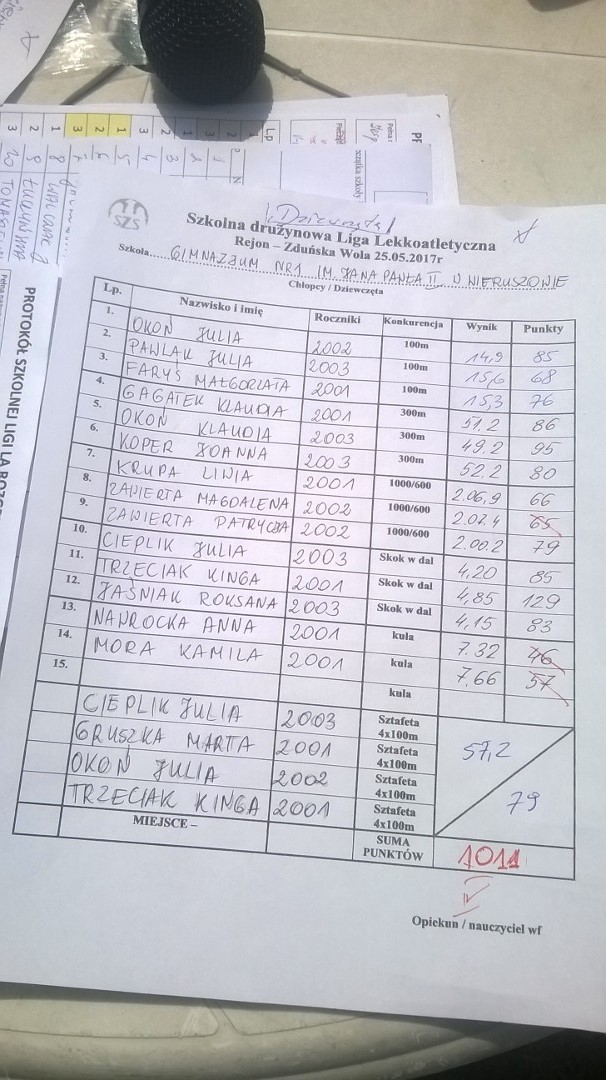 Dziewczęta
SZS
Szkolna drużynowa Liga Lekkoatletyczna
Rejon – Zduńska Wola 25.05.2017r
Szkoła... GIMNAZJUM NR1 IM JANA PAWŁA II W WIERUSZOWIE
Chłopcy / Dziewczęta
Lp. Nazwisko i imię Roczniki Konkurencja Wynik Punkty
1. OKOŃ JULIA 2002 100m 14,9 85
2. PAWLAK JULIA 2003 100m 15,6 68
3. FARYŚ MAŁGORZATA 2001 100m 15,3 76
4. GAGATEK KLAUDIA 2001 300m 51.2 86
5. OKOŃ KLAUDIA 2003 300m 49.2 95
6. KOPER JOANNA 2003 300m 52.2 80
7. KRUPA LIWIA 2001 1000/600 2.06,9 66
8. ZAWIERTA MAGDALENA 2002 1000/600 2.07.4 65
9. ZAWIERTA PATRYCJA 2002 1000/600 2.00.2 79
10. CIEPLIK JULIA 2003 Skok w dal 4,20 85
11. TRZECIAK KINGA 2001 Skok w dal 4,85 129
12. JAŚNIAK ROKSANA 2003 Skok w dal 4,15 83
13. NAWROCKA ANNA 2001 kula 7.32 46
14. MORA KAMILA 2001 kula 7,66 57
15. kula
CIEPLIK JULIA 2003 Sztafeta 4x100m 57,2
GRUSZKA MARTA 2001 Sztafeta 4x100m
OKOŃ JULIA 2002 Sztafeta 4x100m 79
TRZECIAK KINGA 2001 Sztafeta 4x100m
MIEJSCE – SUMA PUNKTÓW 1011
IV
Opiekun / nauczyciel wf
PROTOKÓŁ SZKOLNEJ LIGI LA
Lp